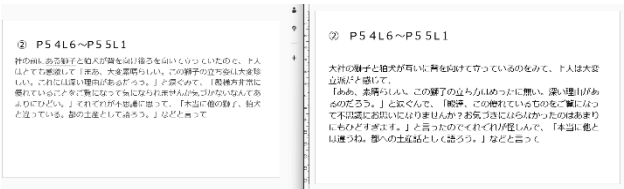 ② P54L6～P55L1
神の前にある獅子と狛犬が背を向け後ろを向いて立っていたので、上人
はとても感激して「まあ、大変素晴らしい。この獅子の立ち姿は大変珍
しい。これには深い理由があるだろう。」と涙ぐみて、「殿様方非常に
優れていることをご覧になって気になられませんか気づかないなんてあ
よりにひどい。」それぞれが不思議に思って、「本当に他の獅子、狛犬
と違っている。都の土産として語ろう。」などと言って
② P54L6～P55L1
大社の獅子と狛犬が互いに背を向けて立っているのをみて、上人は大変
立派だと感じて、
「ああ、素晴らしい。この獅子の立ち方はめったに無い。深い理由があ
るのだろう。」と涙ぐんで、「殿達、この優れているものをご覧になっ
て不思議にお思いになりませんか？お気づきにならなかったのはあまり
にもひどすぎます。」と言ったのでそれぞれが怪しんで、「本当に他と
は違うね。都への土産話として語ろう。」などと言って